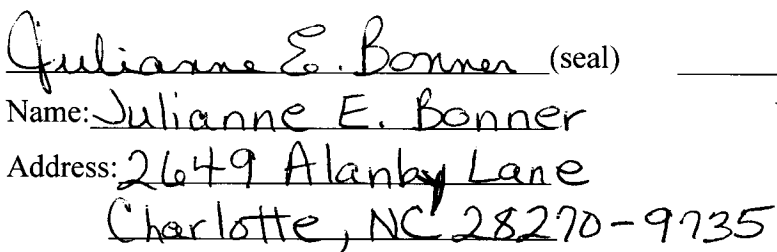 Julianne E. Bonner (seal)
Name: Julianne E. Bonner
Address: 2649 Alanby Lane
Charlotte, NC 28270-9735